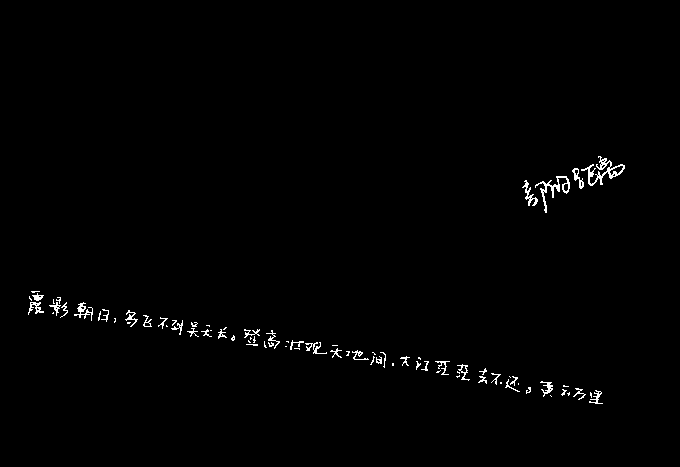 距离
霞影朝日,鸟飞不到吴天长。登高壮观天地间,大江茫茫去不还。黄云万里